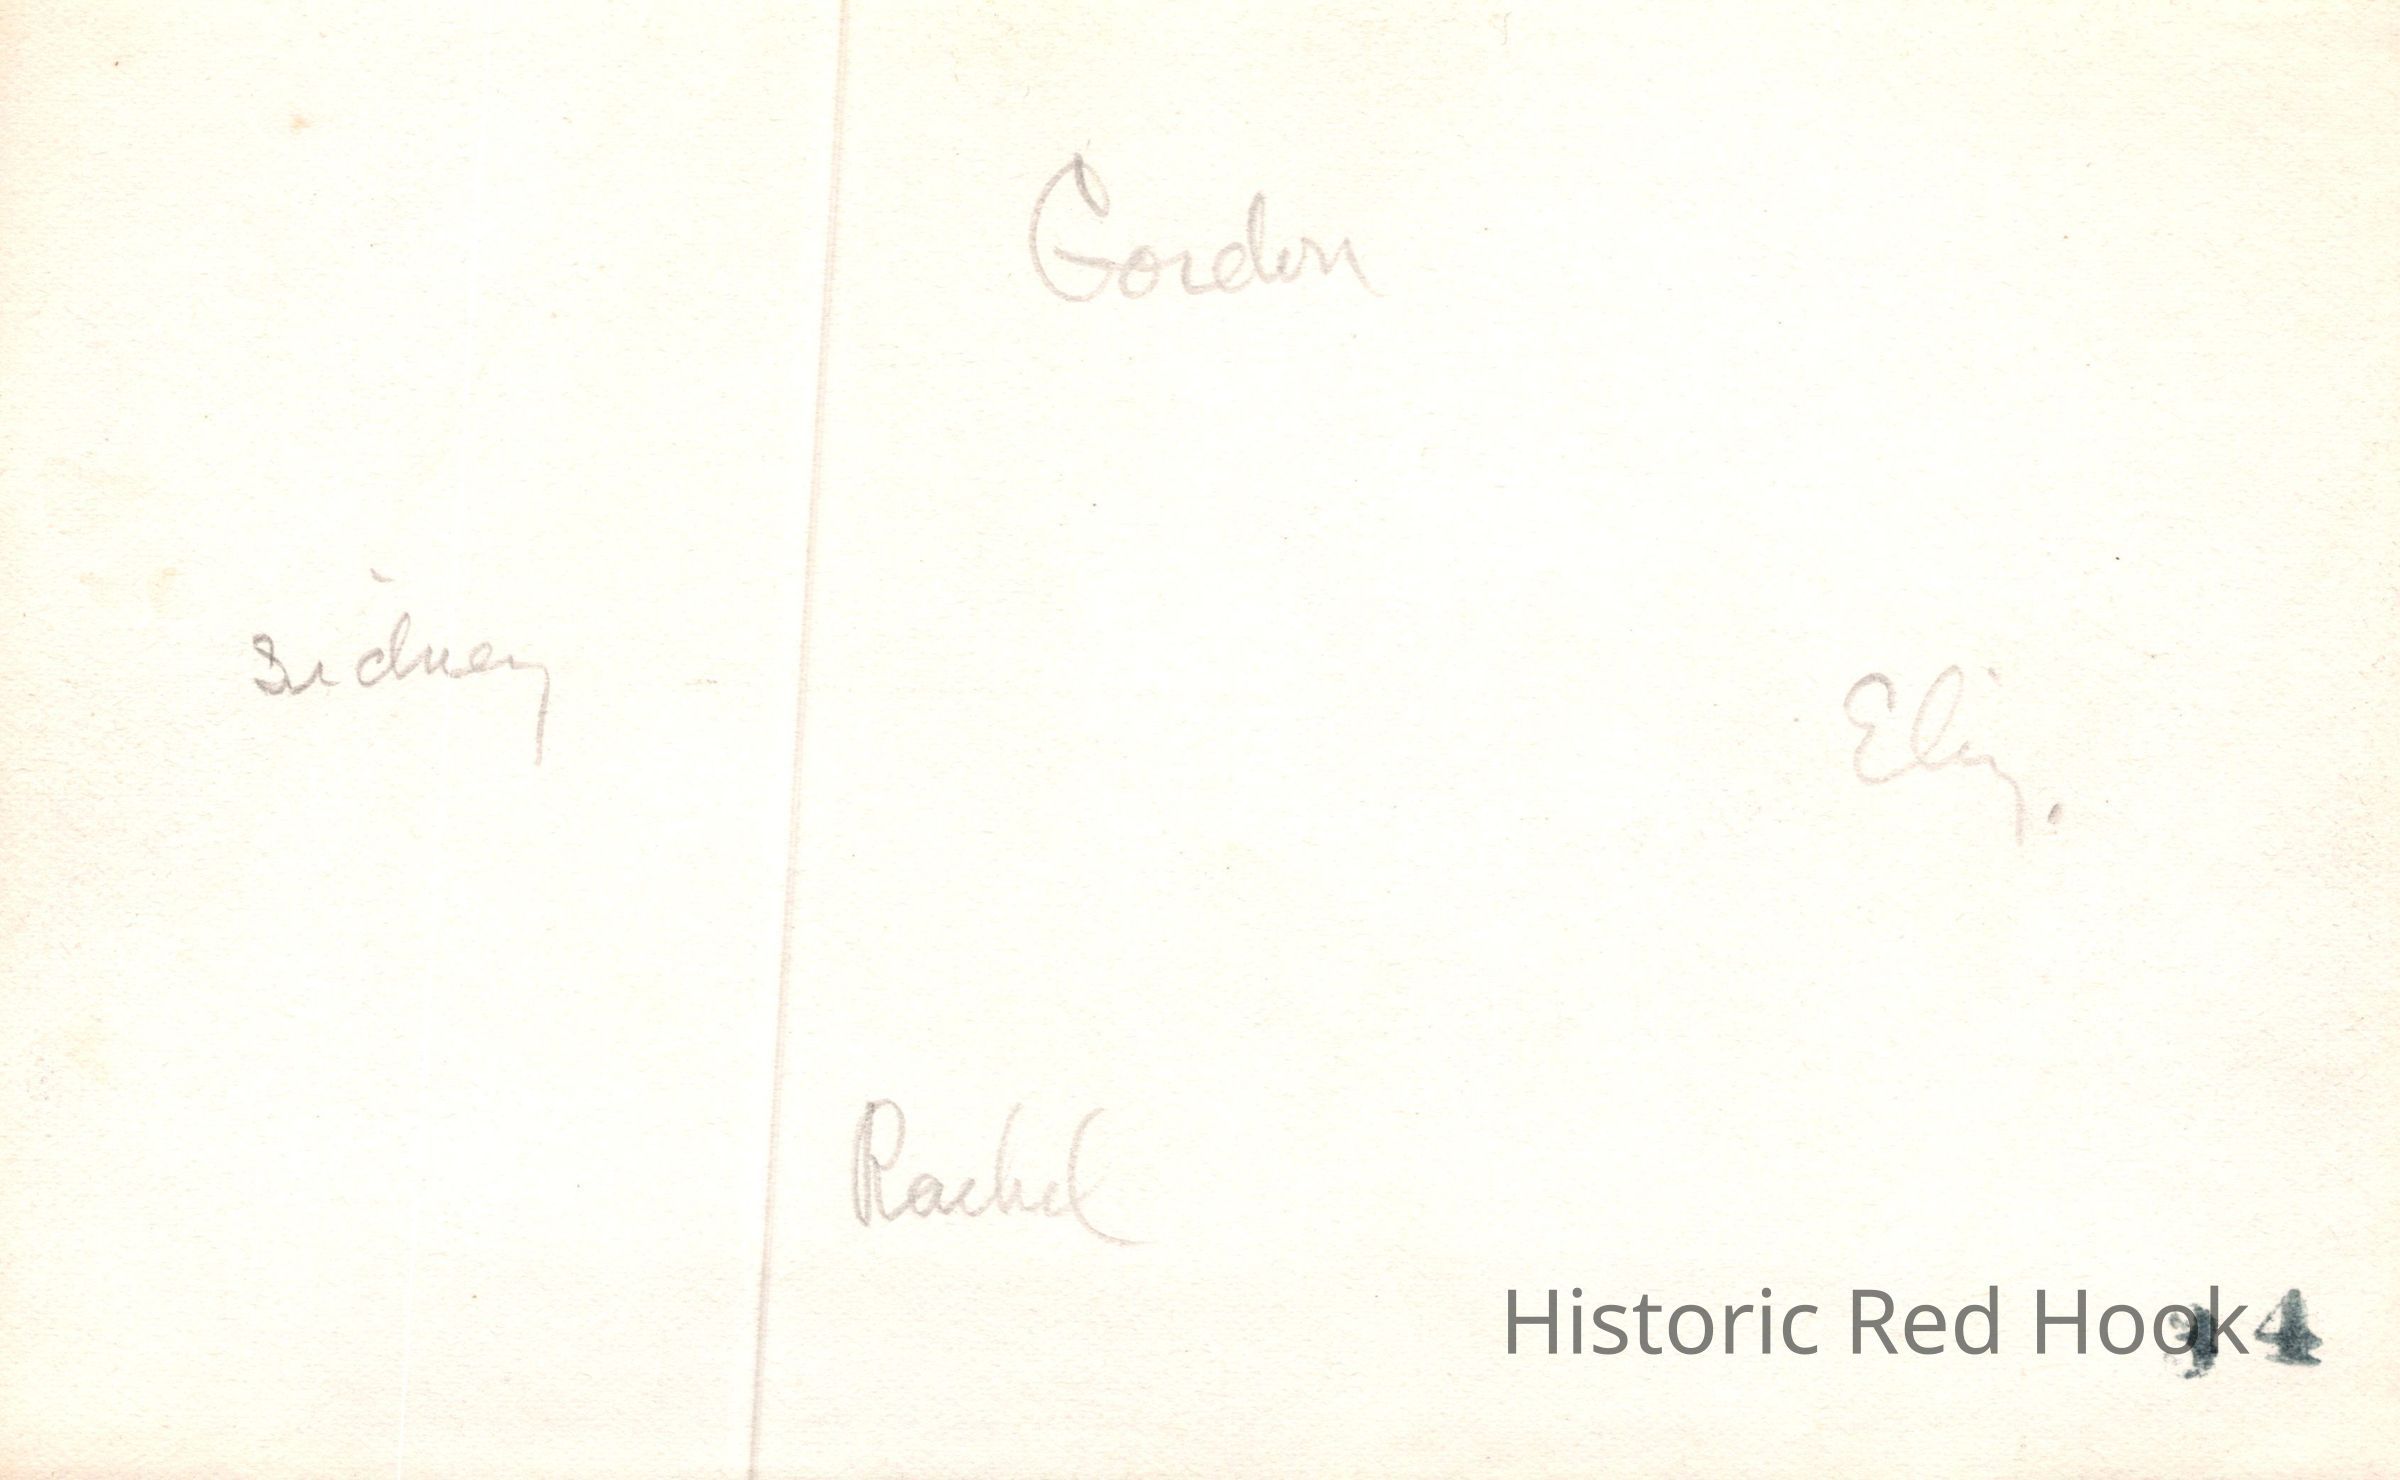 Gordon
Sidney
Eliz.
Rachel
Historic Red Hook
4